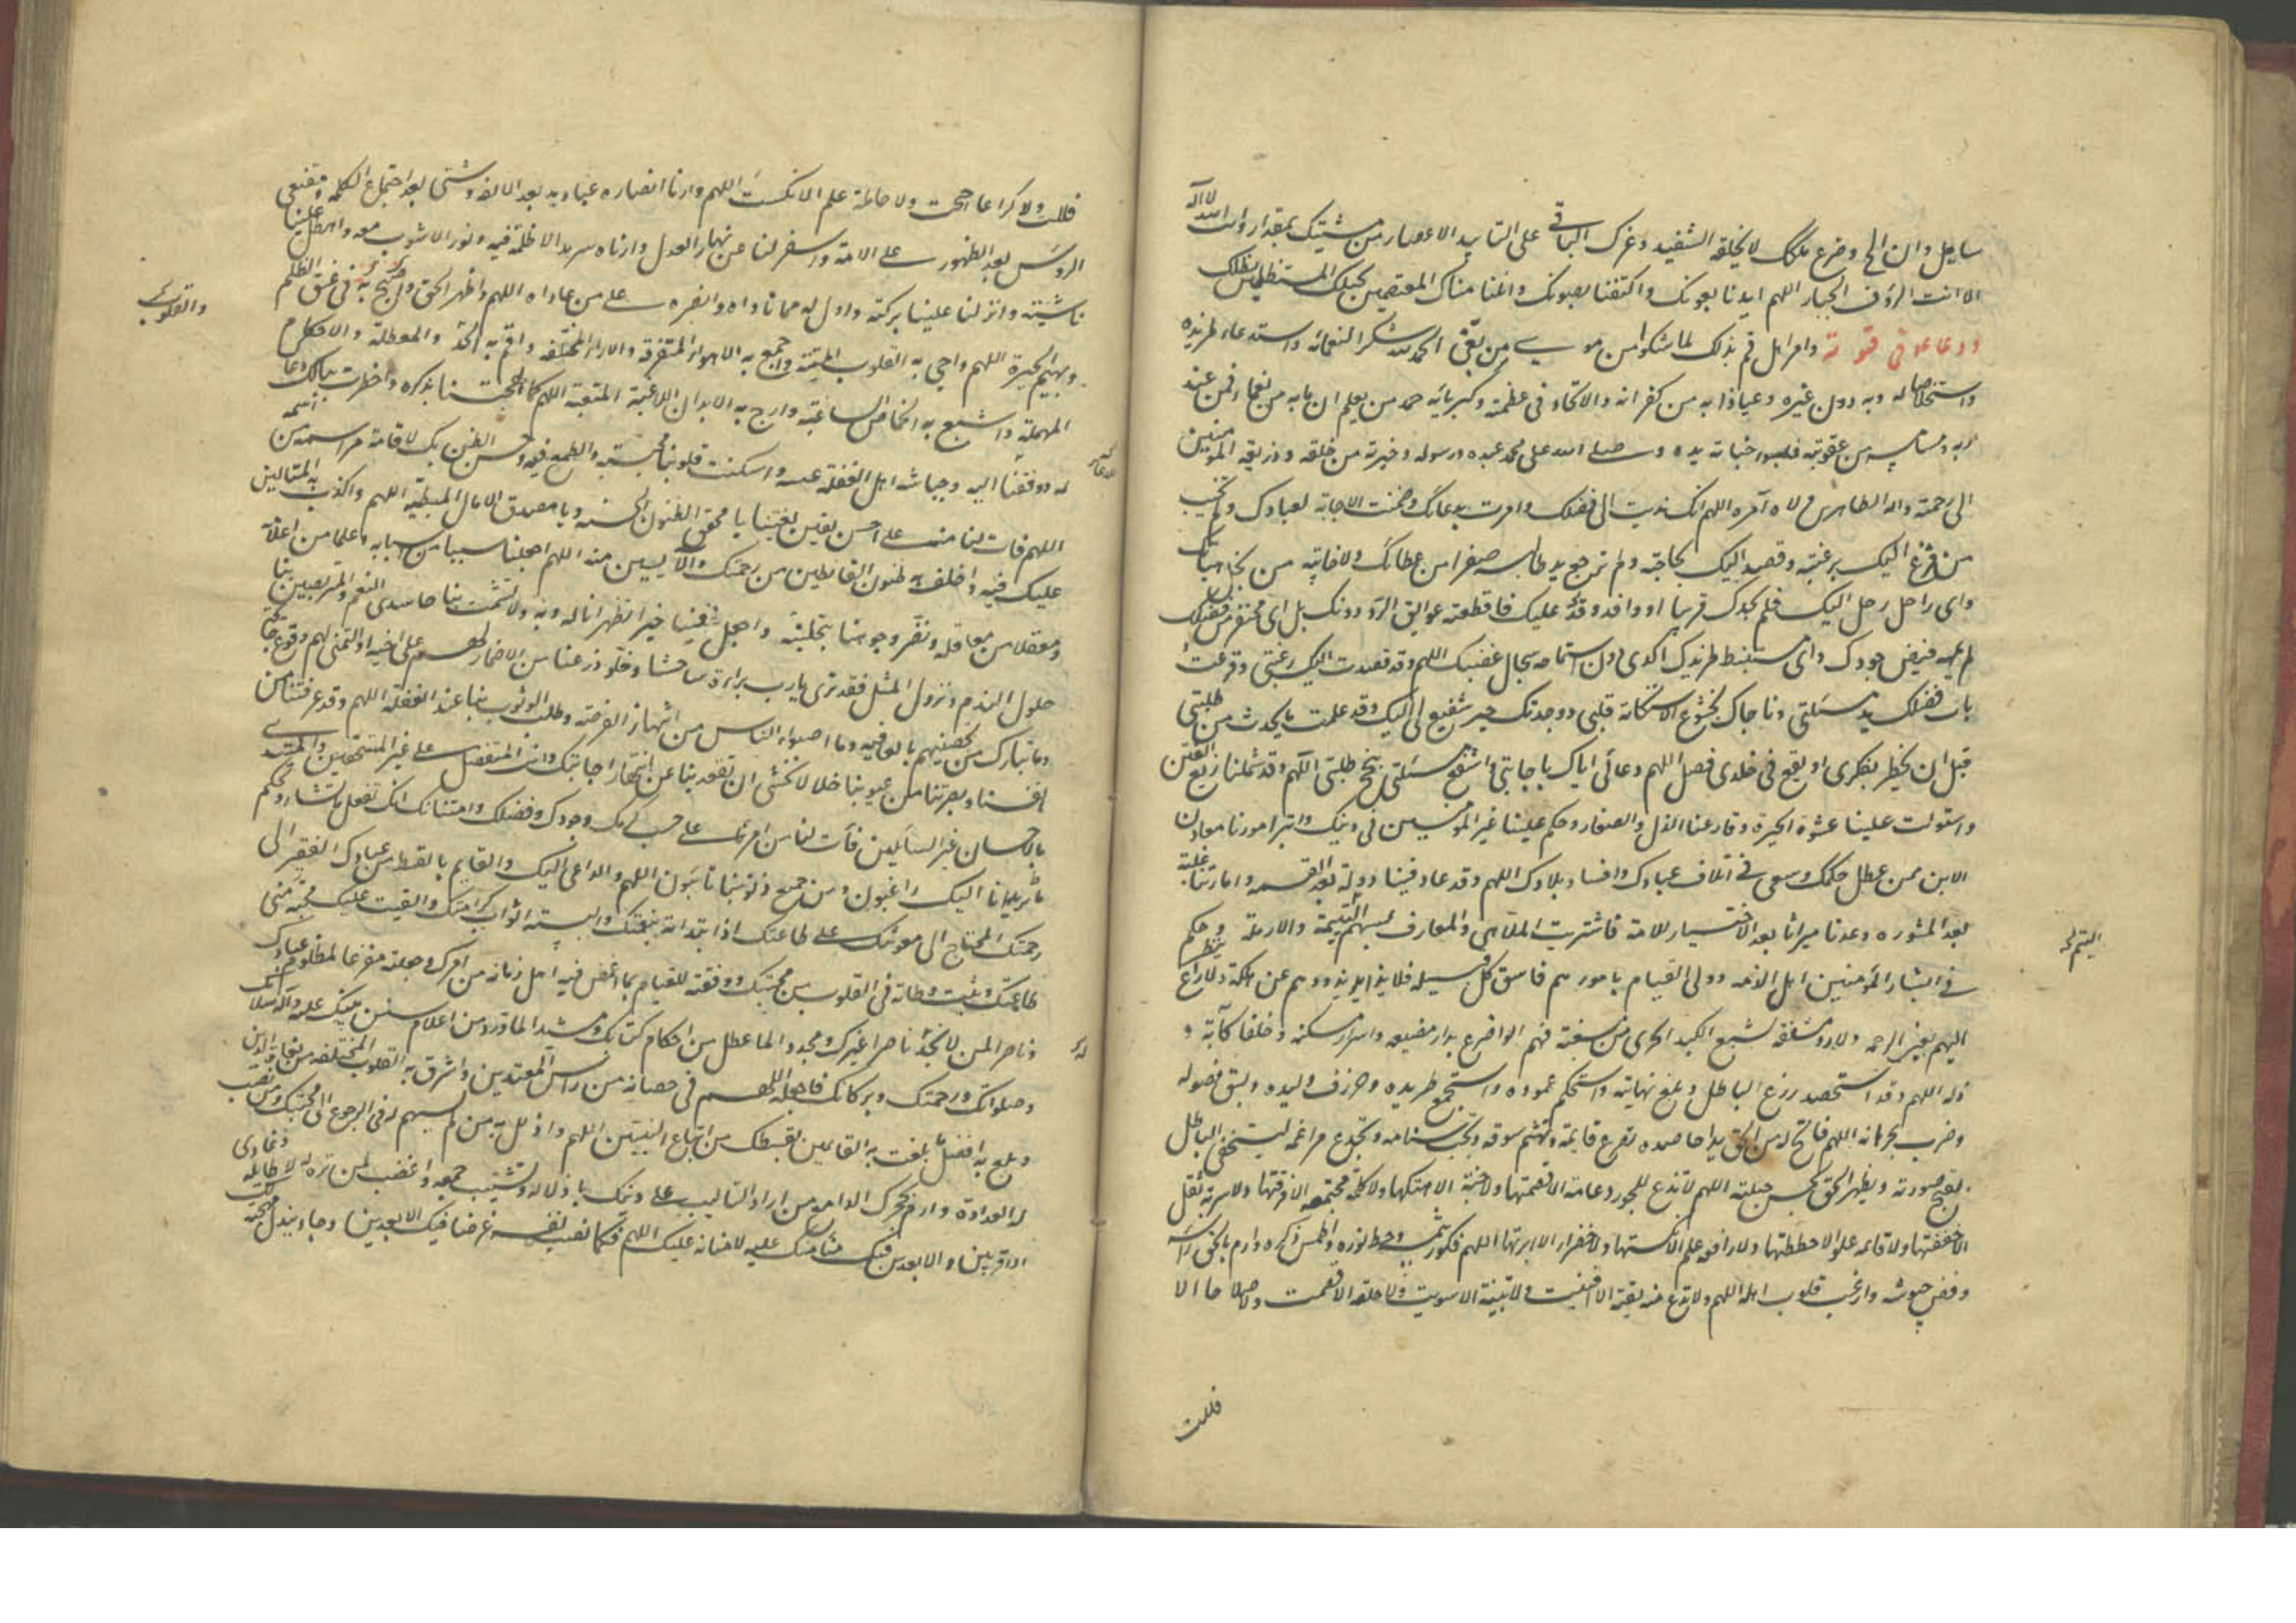 لا اله
سايل وان الح وضرع ملك لا يخلقه التنفيد وعزك الباقي على التأييد الاعصار من مشيتك بمقدار وانت الله
الا انت الرؤف الجبار اللهم ايدنا بعونك واكنفنا بصونك وانلنا منال المعتصمين بحبلك المستظلين بظلك
ودعا ع في قنوته وامر اهل قم بذلك لما شكوا من موسى بن بغى الحمد لله شكرا لنعمائه واستدعاء لمزيده
واستخلاصا له وبه دون غيره وعياذا به من كفرانه والالحاد في عظمته وكبريائه حمد من يعلم ان ما به من نعماء فمن عند
ربه وما مسه من عقوبته فبسوء جناية يده وصلى الله على محمد عبده ورسوله وخيرته من خلقه وذريعة المؤمنين
الى رحمته واله الطاهرين ولاه امره اللهم انك ندبت الى فضلك وامرت بدعائك وضمنت الاجابة لعبادك ولم تخيب
من فزع اليك برغبته وقصد اليك بحاجته ولم ترجع يد طالبه صفرا من عطائك ولا خائبة من نحل هباتك
واى راحل رحل اليك فلم يجدك قريبا او وافد وفد عليك فاقطعته عوايق الرد دونك بل اى محتفر من فضلك
لم يمهه فيض جودك واى مستنبط لمزيدك اكدى دون استماحه سجال عطيتك اللهم وقد قصدت اليك رغبتى وقرعت
باب فضلك يد مسئلتى وناجاك بخشوع الاستكانة قلبى ووجدتك خير شفيع لى اليك وقد علمت ما يحدث من طلبتى
قبل ان يخطر بفكرى او يقع في خلدى فصل اللهم دعائى اياك باجابتى واشفع مسئلتى بنجح طلبتى اللهم وقد شملنا زيغ الفتن
واستولت علينا غشوة الحيرة وقارعنا الذل والصغار وحكم علينا غير المأمونين في دينك وابتز امورنا معادن
الابن ممن عطل حكمك وسعى في اتلاف عبادك وافساد بلادك اللهم وقد عاد فيئنا دولة بعد القسمه وامارتنا غلبة
بعد المشوره وعدنا ميراثا بعد الاختيار للامة فاشتريت الملاهى والمعازف بسهم اليتيمة والارملة وحكم
اليتيم
في ابشار المؤمنين اهل الذمه وولى القيام بامورهم فاسق كل قبيله فلا ذايد يذودهم عن هلكة ولا راع ينظر
اليهم بعين الرحمه ولا ذو شفقه يشبع الكبد الحرى من مسغبة فهم اولو ضرع بدار مضيعه واسراء مسكنه وخلفاء كآبة و
ذله اللهم وقد استحصد زرع الباطل وبلغ نهايته واستحكم عموده واستجمع طريده وخذرف وليده وبسق فضوله
وضرب بجرانه اللهم فاتح له من الحق يدا حاصده تصرع قايمه وتهشم سوقه وتجب سنامه وتجدع مراغمه ليستخفى الباطل
بقبح صورته ويظهر الحق بحسن حليته اللهم لا تدع للجور دعامة الا قصمتها ولا جنة الا هتكتها ولا كلمة مجتمعه الا فرقتها ولا سرية ثقل
الا خففتها ولا قائمه علو الا حططتها ولا رافعه علم الا نكستها ولا خضراء الا ابرتها اللهم فكور شمسه وحط نوره واطمس ذكره وارم بالحق رأسه
وفض جيوشه وارعب قلوب اهله اللهم ولا تدع منه بقية الا افنيت ولا بنية الا سويت ولا حلقه الا فصمت ولا سلاحا الا
فللت
فللت ولا كراعا الا اجتحت ولا حاملة علم الا نكست اللهم وارنا انصاره عباديد بعد الالفه وشتى بعد اجتماع الكلمه ومقنعى
الروس بعد الظهور على الامة واسفر لنا عن نهار العدل وارناه سرمدا لا ظلمة فيه ونورا لا شوب معه واهطل علينا
ناشيته وانزل لنا علينا بركته وادل له ممن ناواه وانصره على من عاداه اللهم واظهر الحق واصبح به في غسق الظلم
وبهيم الحيرة اللهم واحى به القلوب الميتة واجمع به الاهواء المتفرقة والاراء المختلفه واقم به الحدود المعطلة والاحكام
والقلوب
المهملة واشبع به الخماص الساغبة وارح به الابدان اللاغبة المتعبة اللهم كما الهجتنا بذكره واخطرت ببالنا دعاك
له ووفقتنا اليه وحياشه اهل الغفلة عنه واسكنت قلوبنا محبته والطمع فيه وحسن الظن بك لاقامة مراسمه
اللهم فات لنا منه على احسن يقين يا محقق الظنون الحسنه ويا مصدق الامال المبطيه اللهم واكذب به المتألين
عليك فيه واخلف به ظنون القانطين من رحمتك والآيسين منه اللهم اجعلنا سببا من اسبابه وعلما من اعلامه
ومعقلا من معاقله ونضر وجوهنا بتحليته واجعل فينا خيرا تظهرنا له وبه ولا تشمت بنا حاسدى النعم والمتربصين بنا
حلول الندم ونزول المثل فقد ترى يا رب براءة ساحتنا وخلو ذرعنا من الاضمار لهم على احنه او التمنى لهم وقوع جائحة
وما تبارك من تحصينهم بالعافيه وما اضبوا لنا من انتهاز الفرصه وطلب الوثوب بنا عند الغفلة اللهم وقد عرفتنا من
انفسنا وبصرتنا من عيوبنا خلالا نخشى ان تقعد بنا عن اشتهار اجابتك وانت المتفضل على غير المستحقين والمبتدى
بالاحسان غير السائلين فآت لنا من امرنا على حسب كرمك وجودك وفضلك وامتنانك انك تفعل ما تشاء وتحكم
ما تريد انا اليك راغبون ومن جميع ذنوبنا تائبون اللهم والداعى اليك والقايم بالقسط من عبادك الفقير الى
رحمتك المحتاج الى معونتك على طاعتك اذ ابتداته بنعمتك والبسته اثواب كرامتك والقيت عليه محبة منى
طاعتك وثبت وطاته في القلوب من محبتك ووفقته للقيام بما اغمض فيه اهل زمانه من امرك وجعلته مفزعا لمظلوم عبادك
وناصرا لمن لا يجد ناصرا غيرك ومجددا لما عطل من احكام كتابك ومشيدا لما ورد من اعلام سنن نبيك عليه وآله سلامك
وصلواتك ورحمتك وبركاتك فاجعله اللهم في حصانه من باس المعتدين واشرق به القلوب المختلفه من بغاة الدين
وبلغ به افضل ما بلغت به القايمين بقسطك من اتباع النبيين اللهم واذلل به من لم تسهم له في الرجوع الى محبتك ومن نصب
له العداوة وارم بحجرك الدامغ من اراد التاليب على دينك باذلاله وتشتيت جمعه واغضب لمن لا ترة له ولا طائله وعادى
الاقربين والابعدين فيك منا منك عليه لا منا منه عليك اللهم فكما نصب نفسه غرضا فيك للابعدين وجاد ببذل مهجته